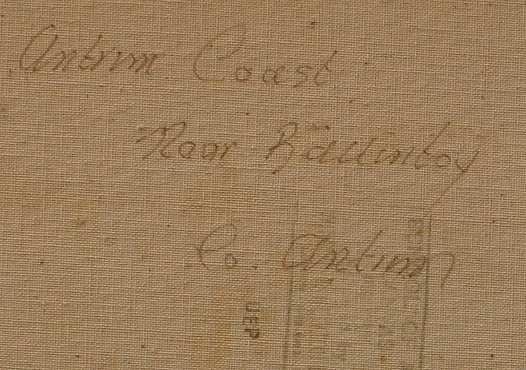 Antrim Coast
Near Ballintoy
Co. Antrim